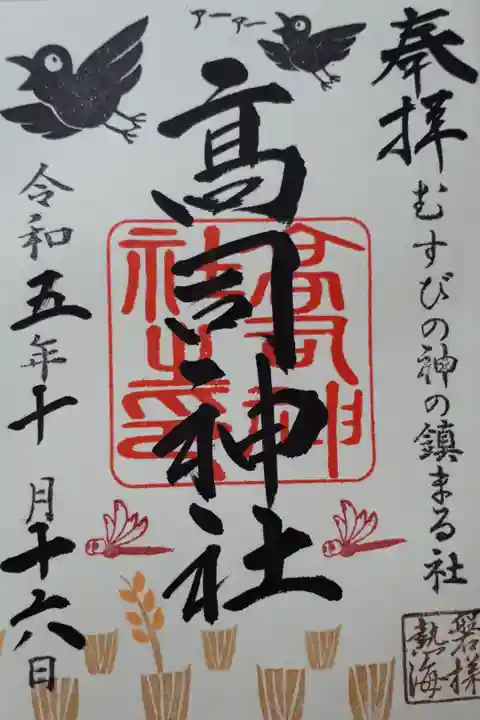 奉拝
むすびの神の鎮まる社
アーアー
髙司神社
髙司神社之印
令和五年十月十六日
磐梯熱海